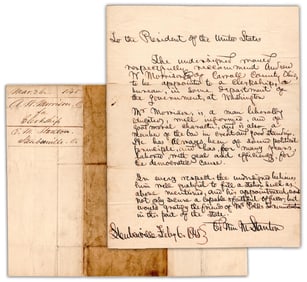 To the President of the United States
The undersigned would
respectfully recommend Andrew
W Morrison Esq Carroll County Ohio
to be appointed to a clerkship, or
bureau, in some department of
the government, at Washington
Mr Morrison, is a man liberally
educated, well informed, and of
good moral character, and is a
member of the bar in excellent good standing.
He has always been of sound political
principles, and has, for many years
labored with zeal and efficiency, for
the democratic cause
In every respect the undersigned believe
him well qualified to fill a station such as
above mentioned, and his appointment would
not only secure a capable efficient officer, but
would gratify the friends of the Administration
in this part of the state
Steubenville Feby 6. 1845
Edwin M. Stanton
March 1845
A. W. Morrison
Clerkship
E. M. Stanton
Steubenville